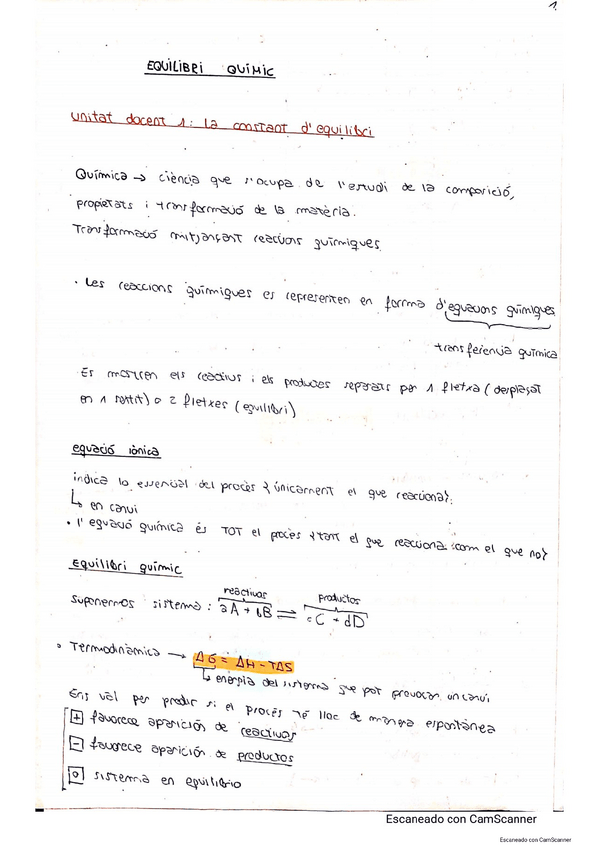 1.
EQUILIBRI QUÍMIC
Unitat docent 1: La constant d'equilibri
Química → ciència que s'ocupa de l'estudi de la composició,
propietats i transformació de la matèria.
Transformació mitjançant reaccions químiques.
· Les reaccions químiques es representen en forma d'equacions químiques
transferencia química
Es mostren els reactius i els productes separats per 1 fletxa (desplaçat
en 1 sentit) o 2 fletxes (equilibri)
equació iònica
indica lo essencial del procès {únicament el que reacciona}.
↳ en canvi
• l'equació química és TOT el procès {tant el que reacciona com el que no}
Equilibri químic
reactivos productos
Suposem sistema: aA + bB ⇌ cC + dD
• Termodinàmica → ΔG = ΔH - TΔS
↳ energia del sistema que pot provocar un canvi
Ens val per predir si el procès té lloc de manera espontànea
+ favorece aparición de reactivos
- favorece aparición de productos
0 sistema en equilibrio
Escaneado con CamScanner
Escaneado con CamScanner